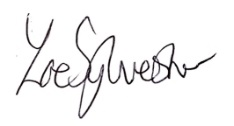 Zoe Sylvester